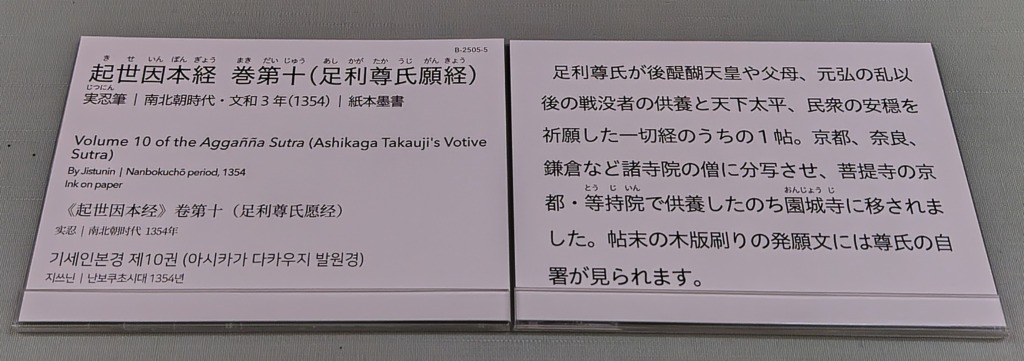 B-2505-5
きせいんぽんぎょう まきだいじゅう あしかがたかうじがんきょう
起世因本経 巻第十(足利尊氏願経)
じつにん
実忍筆 | 南北朝時代・文和3年(1354) | 紙本墨書
Volume 10 of the Aggañña Sutra (Ashikaga Takauji's Votive
Sutra)
By Jistunin | Nanbokuchō period, 1354
Ink on paper
《起世因本经》卷第十（足利尊氏愿经）
实忍 | 南北朝时代 1354年
기세인본경 제10권 (아시카가 다카우지 발원경)
지쓰닌 | 난보쿠초시대 1354년
足利尊氏が後醍醐天皇や父母、元弘の乱以
後の戦没者の供養と天下太平、民衆の安穏を
祈願した一切経のうちの1帖。京都、奈良、
鎌倉など諸寺院の僧に分写させ、菩提寺の京
とうじいん おんじょうじ
都・等持院で供養したのち園城寺に移されま
した。帖末の木版刷りの発願文には尊氏の自
署が見られます。